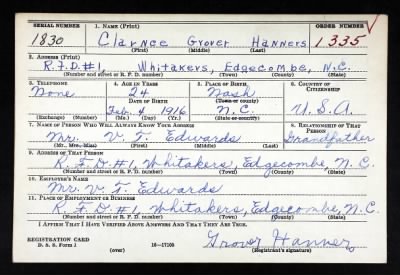 SERIAL NUMBER 1. NAME (Print) ORDER NUMBER
1830 Clarnce Grover Hanners 1335
(First) (Middle) (Last)
2. ADDRESS (Print)
R.F.D.#1, Whitakers, Edgecombe, N.C.
(Number and street or R. F. D. number) (Town) (County) (State)
3. TELEPHONE 4. AGE IN YEARS 5. PLACE OF BIRTH 6. COUNTRY OF CITIZENSHIP
None 24 Nash
DATE OF BIRTH (Town or county)
Feb. 4 1916 N.C. U.S.A.
(Exchange) (Number) (Mo.) (Day) (Yr.) (State or country)
7. NAME OF PERSON WHO WILL ALWAYS KNOW YOUR ADDRESS 8. RELATIONSHIP OF THAT PERSON
Mr. V. T. Edwards Grandfather
(Mr., Mrs., Miss) (First) (Middle) (Last)
9. ADDRESS OF THAT PERSON
R.F.D #1, Whitakers, Edgecombe, N.C.
(Number and street or R. F. D. number) (Town) (County) (State)
10. EMPLOYER'S NAME
Mr. V. T. Edwards
11. PLACE OF EMPLOYMENT OR BUSINESS
R.F.D #1 Whitakers, Edgecombe, N.C.
(Number and street or R. F. D. number) (Town) (County) (State)
I AFFIRM THAT I HAVE VERIFIED ABOVE ANSWERS AND THAT THEY ARE TRUE.
REGISTRATION CARD
D. S. S. Form 1 (over) 16—17105
Grover Hanner
(Registrant's signature)